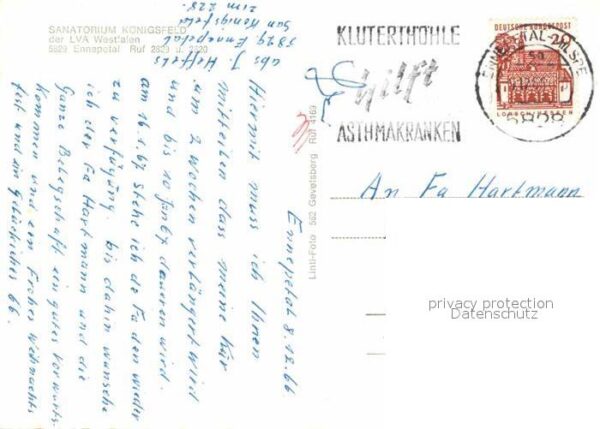 SANATORIUM KÖNIGSFELD
der LVA Westfalen
5829 Ennepetal Ruf 2829 u. 2820
abs J. Heffels
5829 Ennepetal
San Königsfeld
Zim 228.
Ennepetal 8.12.66
Hiermit muss ich Ihnen
mitteilen dass meine Kur
um 2 Wochen verlängert wird
und bis 10 Jan 67 dauern wird.
am 16.1.67 stehe ich de Fa den wieder
zu verfügung, bis dahin wünsche
ich der Fa Hartmann und die
Ganze Belegschaft ein gutes vorwurts-
kommen und ein Frohes Weihnachts
fest und ein Glückliches 66.
Linti-Foto 582 Gevelsberg Ruf 4169
KLUTERTHÖHLE
hilft
ASTHMAKRANKEN
DEUTSCHE BUNDESPOST
20
5828
An Fa Hartmann
privacy protection
Datenschutz